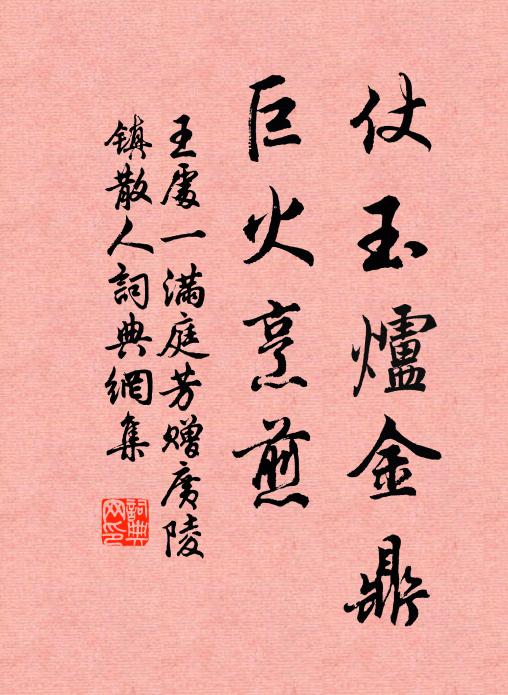 仗玉爐金鼎
巨火烹煎
王處一滿庭芳贈廣陵
鎮散人詞典網集
詞典
网印